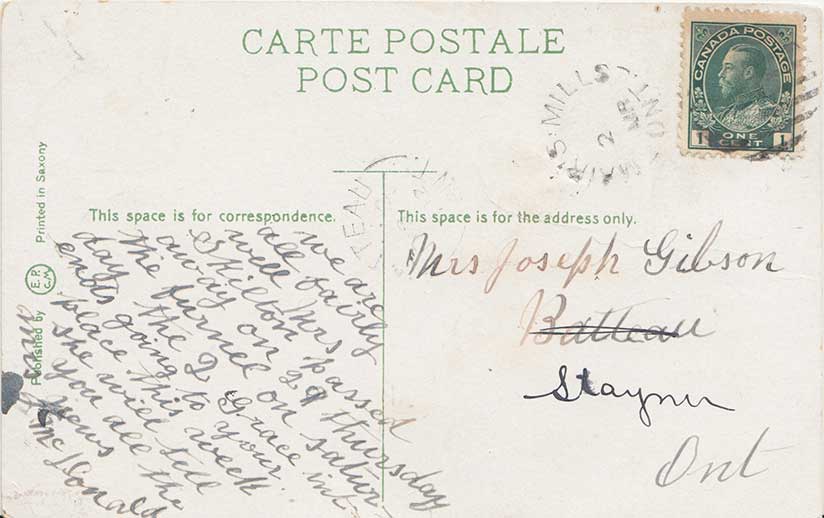 CARTE POSTALE
POST CARD
CANADA POSTAGE
1 ONE CENT 1
MAIR'S·MILLS ONT
2 MR
TEAU
Printed in Saxony
E.P. C.M.
Published by
This space is for correspondence.
This space is for the address only.
we are
all fairly
well Mrs
Skilton passed
away on 29 Thursday
the furnel on satur-
day the 2 Grace int-
ends going to your..
place this week
She will tell
you all the
news
McDonald
Mrs Joseph Gibson
Batteau
Stayner
Ont